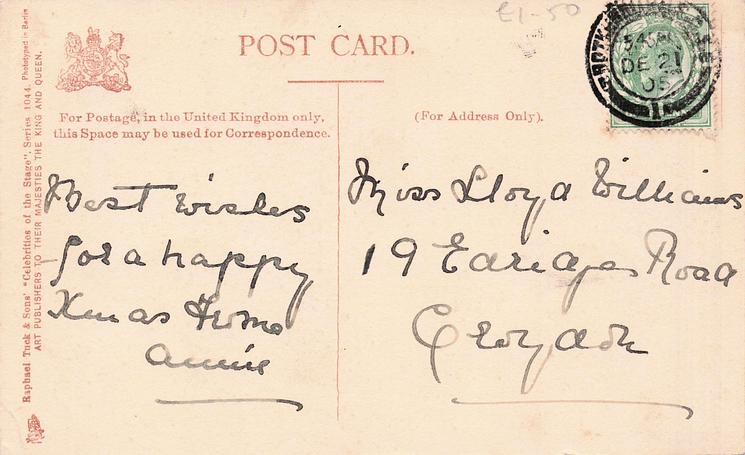 £1-50
POST CARD.
For Postage, in the United Kingdom only,
this Space may be used for Correspondence.
(For Address Only).
DE 21
05
Best wishes
for a happy
Xmas From
Annie
Miss Lloyd Williams
19 Road
Croydon
Raphael Tuck & Sons' "Celebrities of the Stage". Series 1044. Phototyped in Berlin
ART PUBLISHERS TO THEIR MAJESTIES THE KING AND QUEEN.